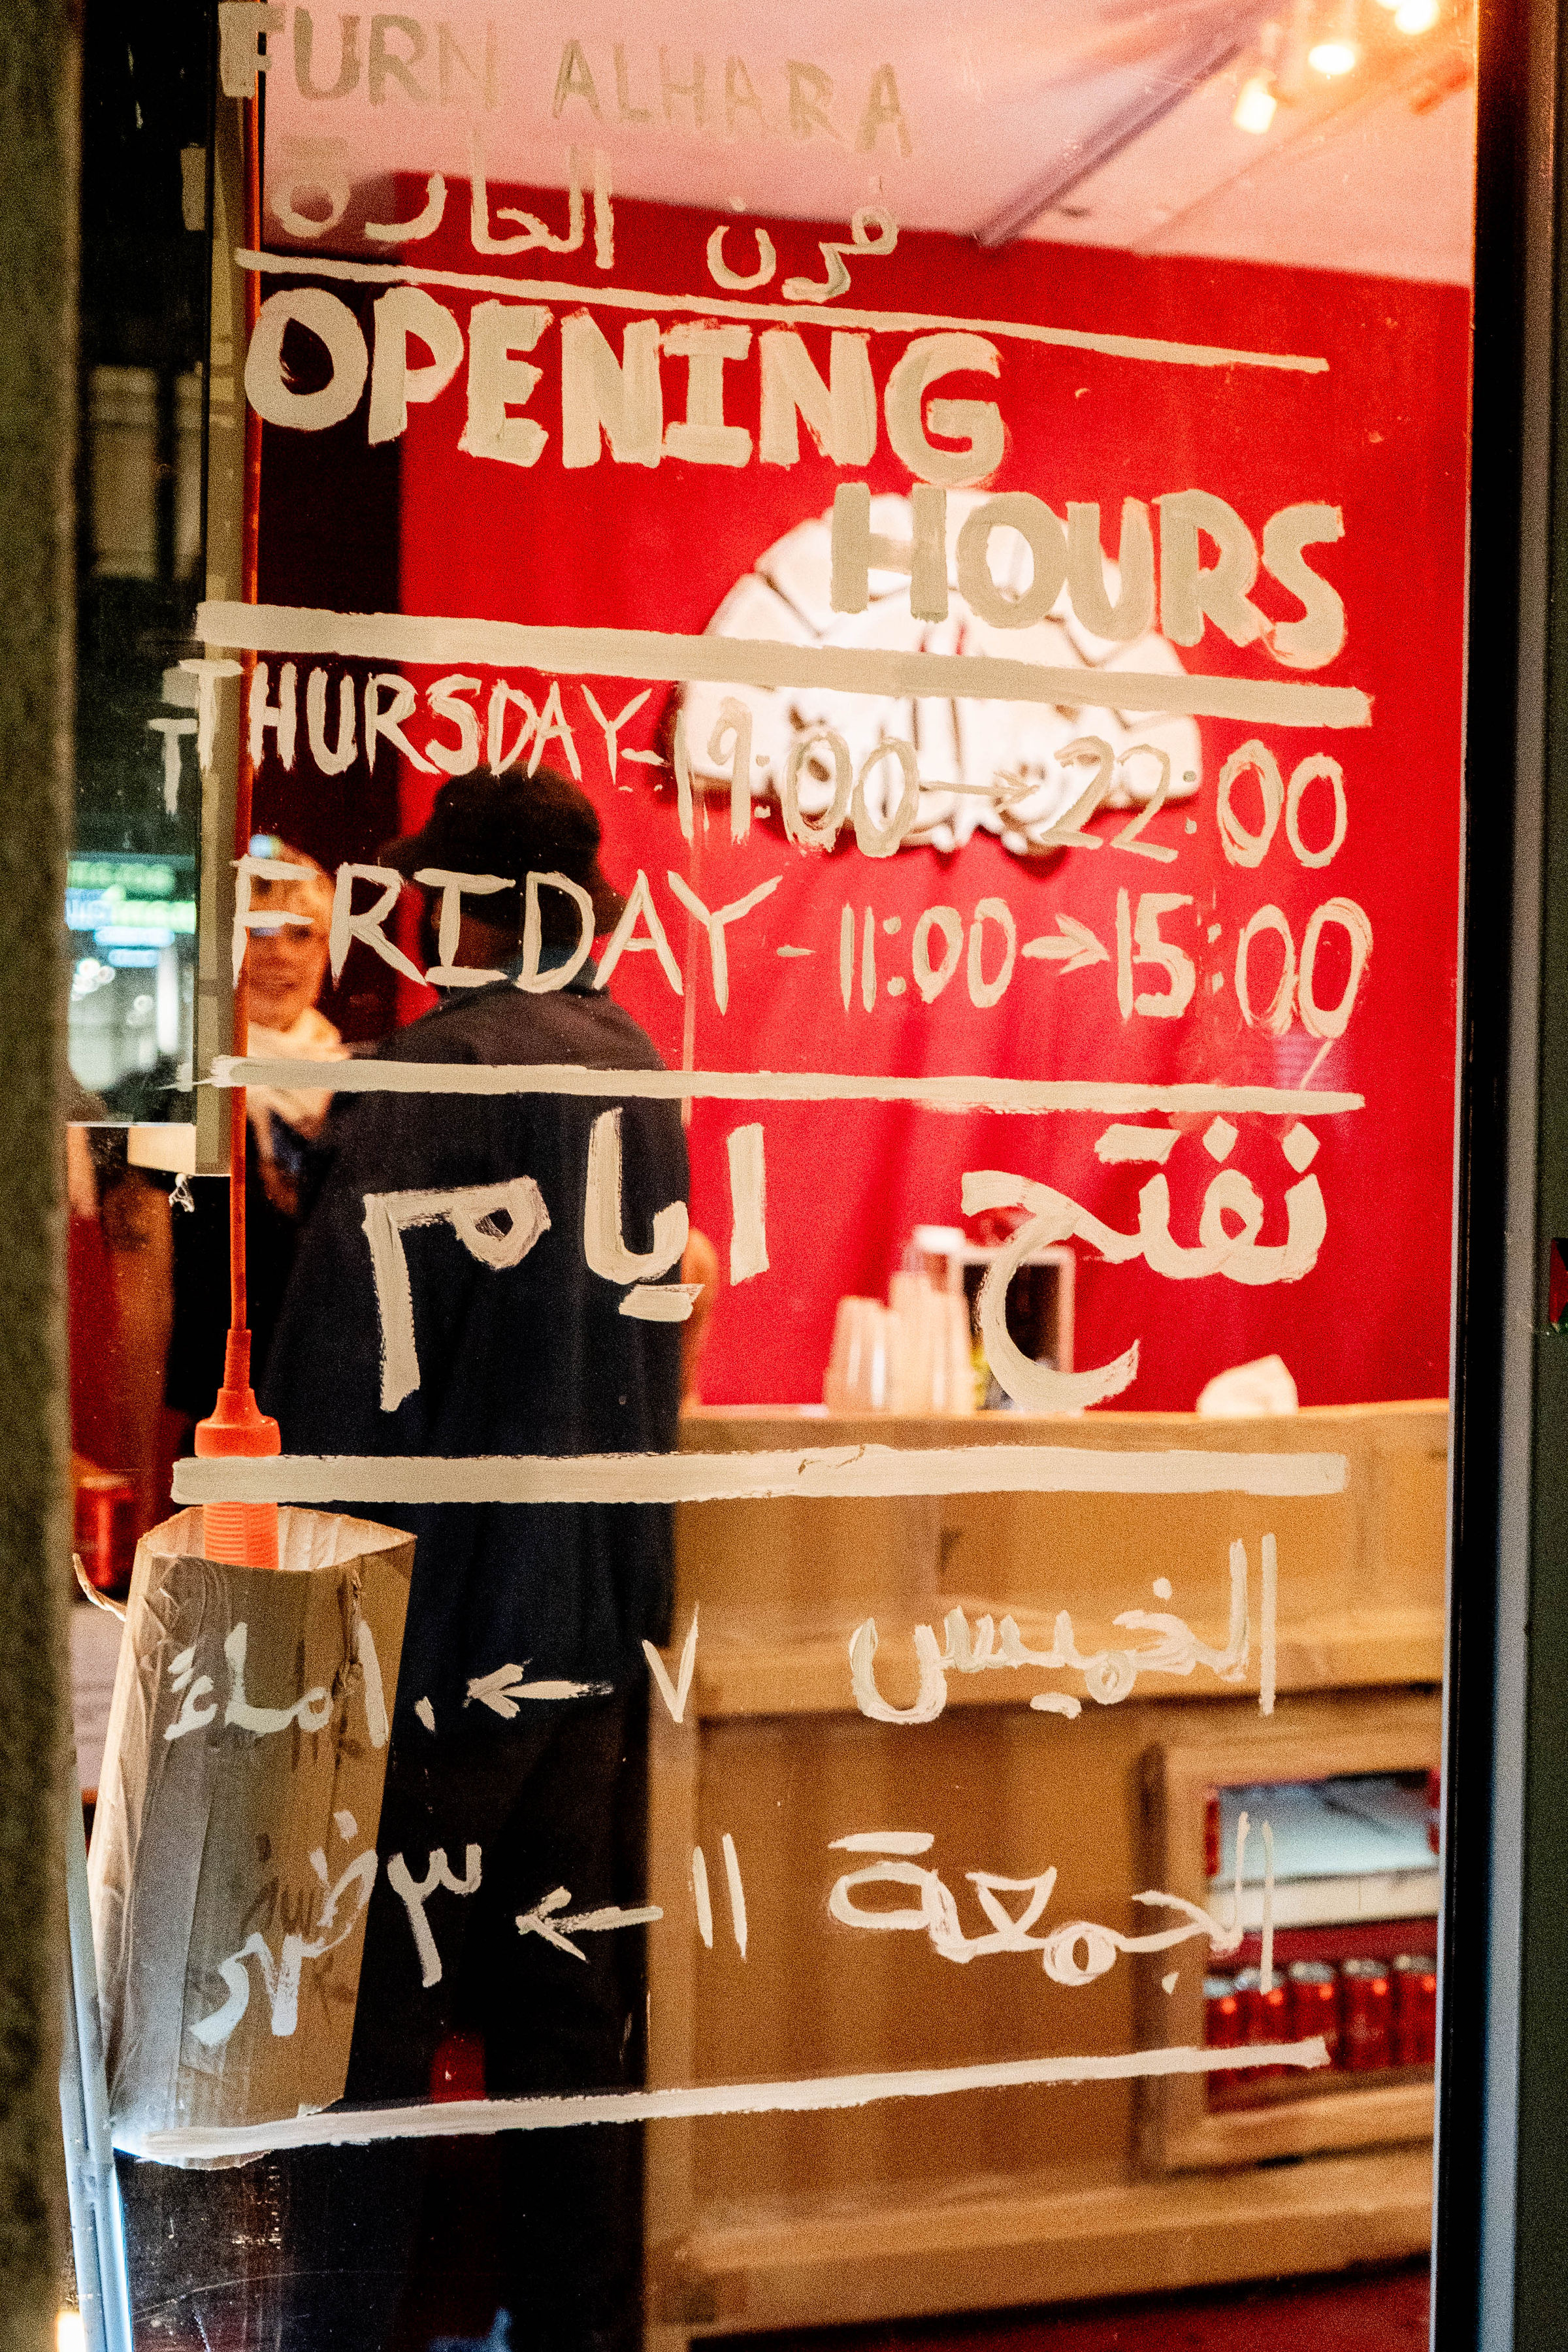 FURN ALHARA
فرن الحارة
OPENING
HOURS
THURSDAY - 19:00 → 22:00
FRIDAY - 11:00 → 15:00
نفتح ايام
الخميس ٧ ← ١٠ مساءً
الجمعة ١١ ← ٣